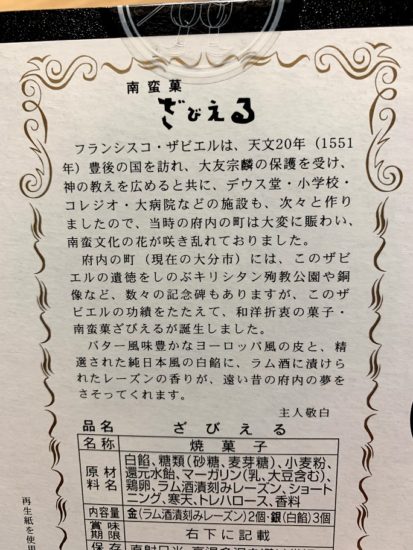 南蛮菓
ざびえる
フランシスコ・ザビエルは、天文20年（1551
年）豊後の国を訪れ、大友宗麟の保護を受け、
神の教えを広めると共に、デウス堂・小学校・
コレジオ・大病院などの施設も、次々と作り
ましたので、当時の府内の町は大変に賑わい、
南蛮文化の花が咲き乱れておりました。
府内の町（現在の大分市）には、このザビ
エルの遺徳をしのぶキリシタン殉教公園や銅
像など、数々の記念碑もありますが、このザ
ビエルの功績をたたえて、和洋折衷の菓子・
南蛮菓ざびえるが誕生しました。
バター風味豊かなヨーロッパ風の皮と、精
選された純日本風の白餡に、ラム酒に漬けら
れたレーズンの香りが、遠い昔の府内の夢を
さそってくれます。
主人敬白
品名 ざびえる
名称 焼菓子
原材料名 白餡、糖類（砂糖、麦芽糖）、小麦粉、
還元水飴、マーガリン（乳、大豆含む）、
鶏卵、ラム酒漬刻みレーズン、ショート
ニング、寒天、トレハロース、香料
内容量 金（ラム酒漬刻みレーズン）2個・銀（白餡）3個
賞味期限 右下に記載
保存
再生紙を使用